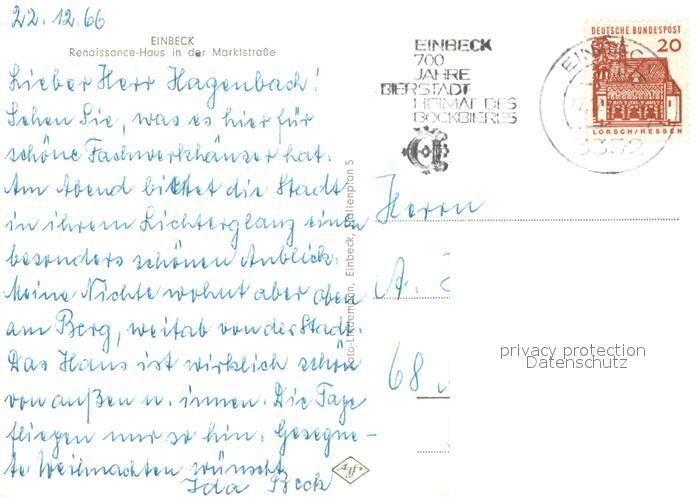 22.12.66
EINBECK
Renaissance-Haus in der Marktstraße
Lieber Herr Hagenbach!
Sehen Sie, was es hier für
schöne Fachwerkhäuser hat.
Am Abend bietet die Stadt
in ihrem Lichterglanz einen
besonders schönen Anblick.
Meine Nichte wohnt aber oben
am Berg, weitab von der Stadt.
Das Haus ist wirklich schön
von außen u. innen. Die Tage
fliegen nur so hin. Gesegne-
te Weihnachten wünscht
Ida Beck
Einbeck,
5
Agfa
EINBECK
700
JAHRE
BIERSTADT
HEIMAT DES
BOCKBIERES
EINBECK
3352
DEUTSCHE BUNDESPOST
20
LORSCH/HESSEN
Herrn
A.
68
privacy protection
Datenschutz